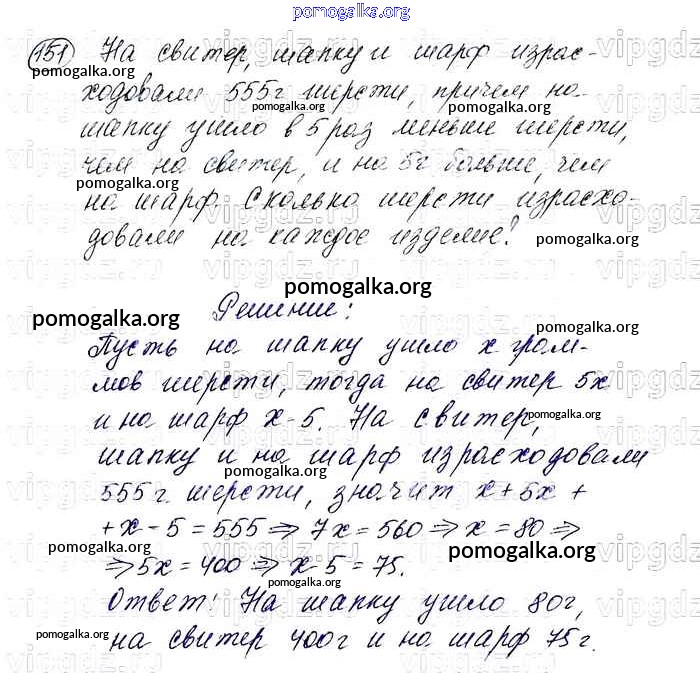 pomogalka.org
151 На свитер, шапку и шарф израс-
pomogalka.org
ходовали 555г шерсти, причем на
pomogalka.org
шапку ушло в 5 раз меньше шерсти,
чем на свитер, и на 5г больше, чем
pomogalka.org
на шарф. Сколько шерсти израсхо-
довали на каждое изделие?
pomogalka.org
pomogalka.org
Решение:
pomogalka.org
pomogalka.org
Пусть на шапку ушло x грам-
мов шерсти, тогда на свитер 5x
и на шарф x-5. На свитер,
pomogalka.org
шапку и на шарф израсходовали
pomogalka.org
555г. шерсти, значит x+5x+
+x-5=555⇒7x=560⇒x=80⇒
pomogalka.org pomogalka.org
⇒5x=400⇒x-5=75.
pomogalka.org
Ответ: На шапку ушло 80г,
pomogalka.org
на свитер 400г и на шарф 75г.